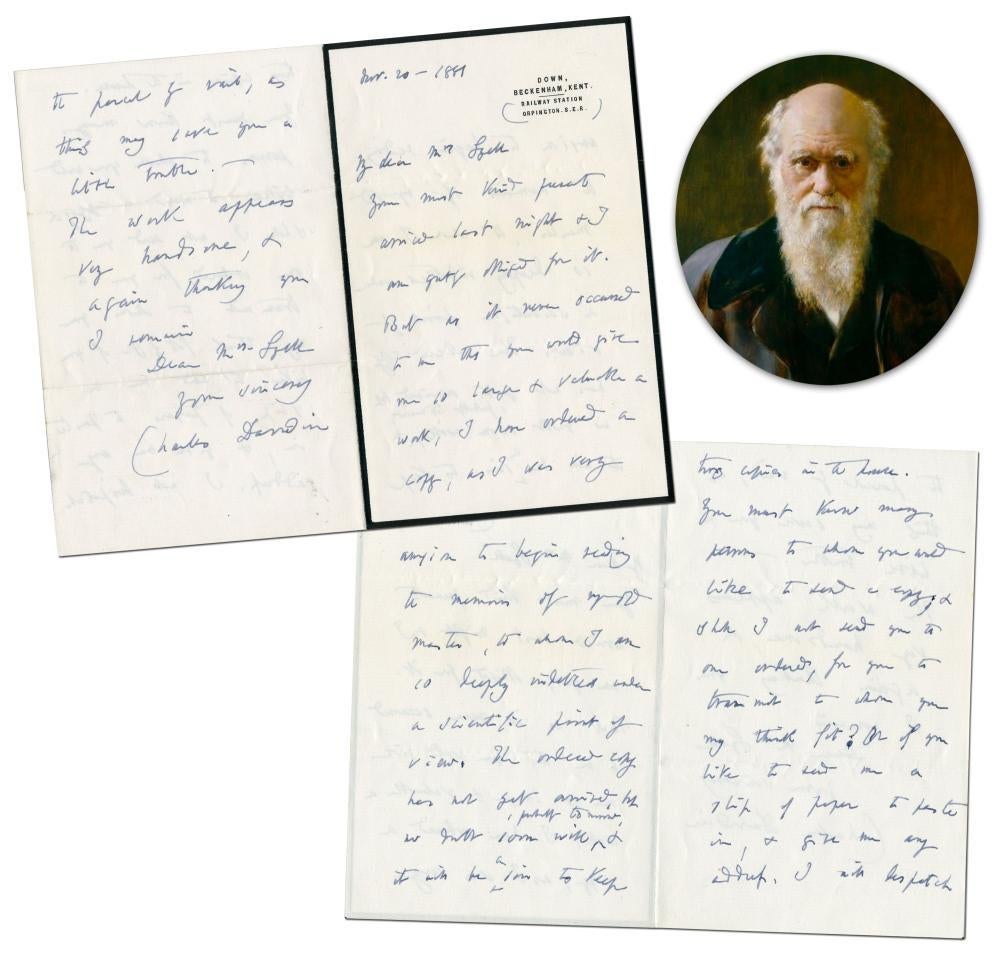 Nov. 20 — 1881
DOWN,
BECKENHAM, KENT.
(RAILWAY STATION
ORPINGTON. S.E.R.)
My dear Mrs Lyell
Your most kind present
arrived last night & I
am greatly obliged for it.
But as it never occurred
to me that you would give
me so large & valuable a
work, I have ordered a
copy, as I was very
anxious to begin reading
the memoirs of my old
master, to whom I am
so deeply indebted under
a scientific point of
view. The ordered copy
has not yet arrived, but
no doubt soon will, probably tomorrow, &
it will be a sin to keep
two copies in the house.
You must know many
persons to whom you would
like to send a copy; &
shd I not send you the
one ordered, for you to
transmit to whom you
may think fit? Or if you
like to send me a
slip of paper to paste
in, & give me any
address. I will despatch
the parcel if with, as
this may save you a
little trouble.
The work appears
very handsome, &
again thanking you
I remain
Dear Mrs Lyell
Yours sincerely
Charles Darwin